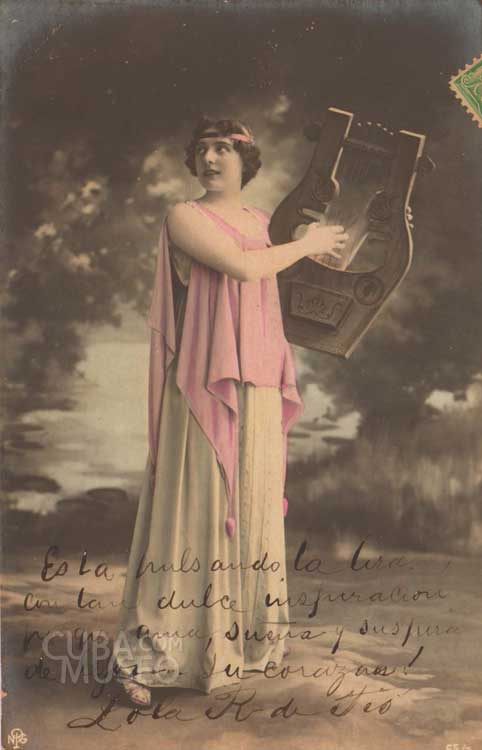 Esta pulsando la lira.
con tan dulce inspiración
ama, sueña y suspira
de su corazon!
Lola R. de Tió
CUBA.COM
MUSEO
NPG